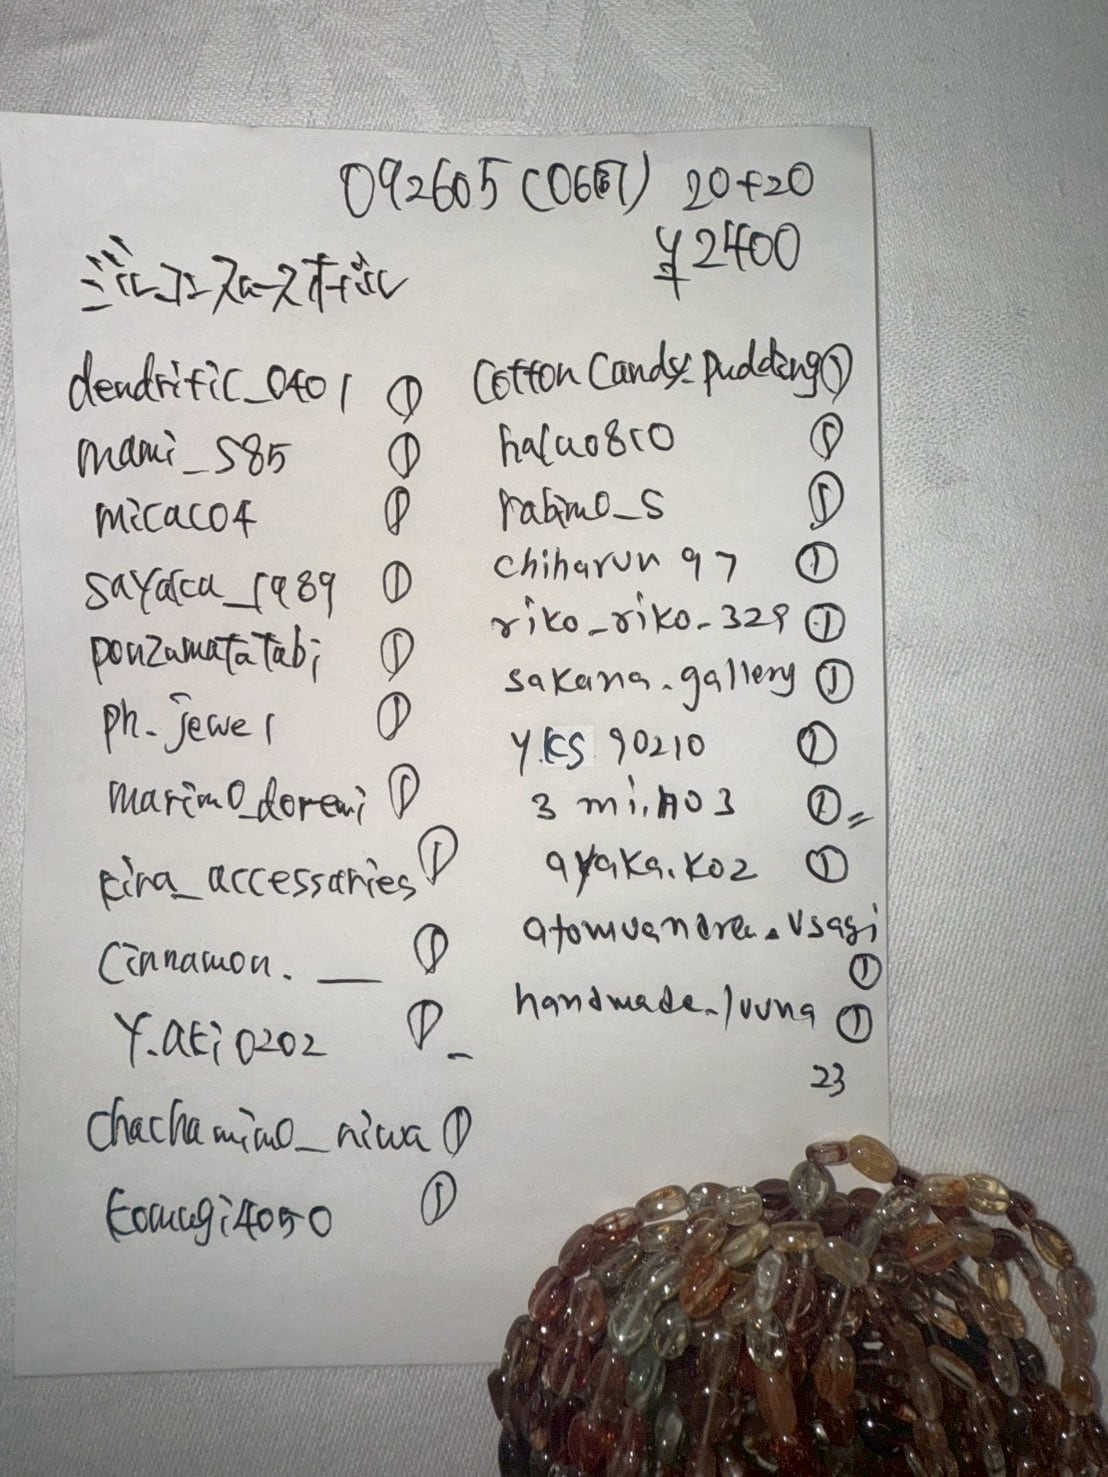 092605 (0657) 20+20
¥2400
ジルコンスースオーバル
dendrific_0401 ①
mami_s85 ①
micaco4 ①
sayaka_1989 ①
ponzumatatabi ①
ph-jewel ①
marimo_doremi ①
kira_accessaries ①
Cinnamon.___ ①
Y.aki0202 ①
chachamimo_niwa ①
komugi4050 ①
Cotton Candy_pudding ①
haluo810 ①
rabimo_s ①
chiharun97 ①
riko_riko_329 ①
sakana.gallery ①
y.ks.90210 ①
3mi.h03 ①
ayaka.ko2 ①
atomuandrea.usagi
①
handmade_luuna ①
23